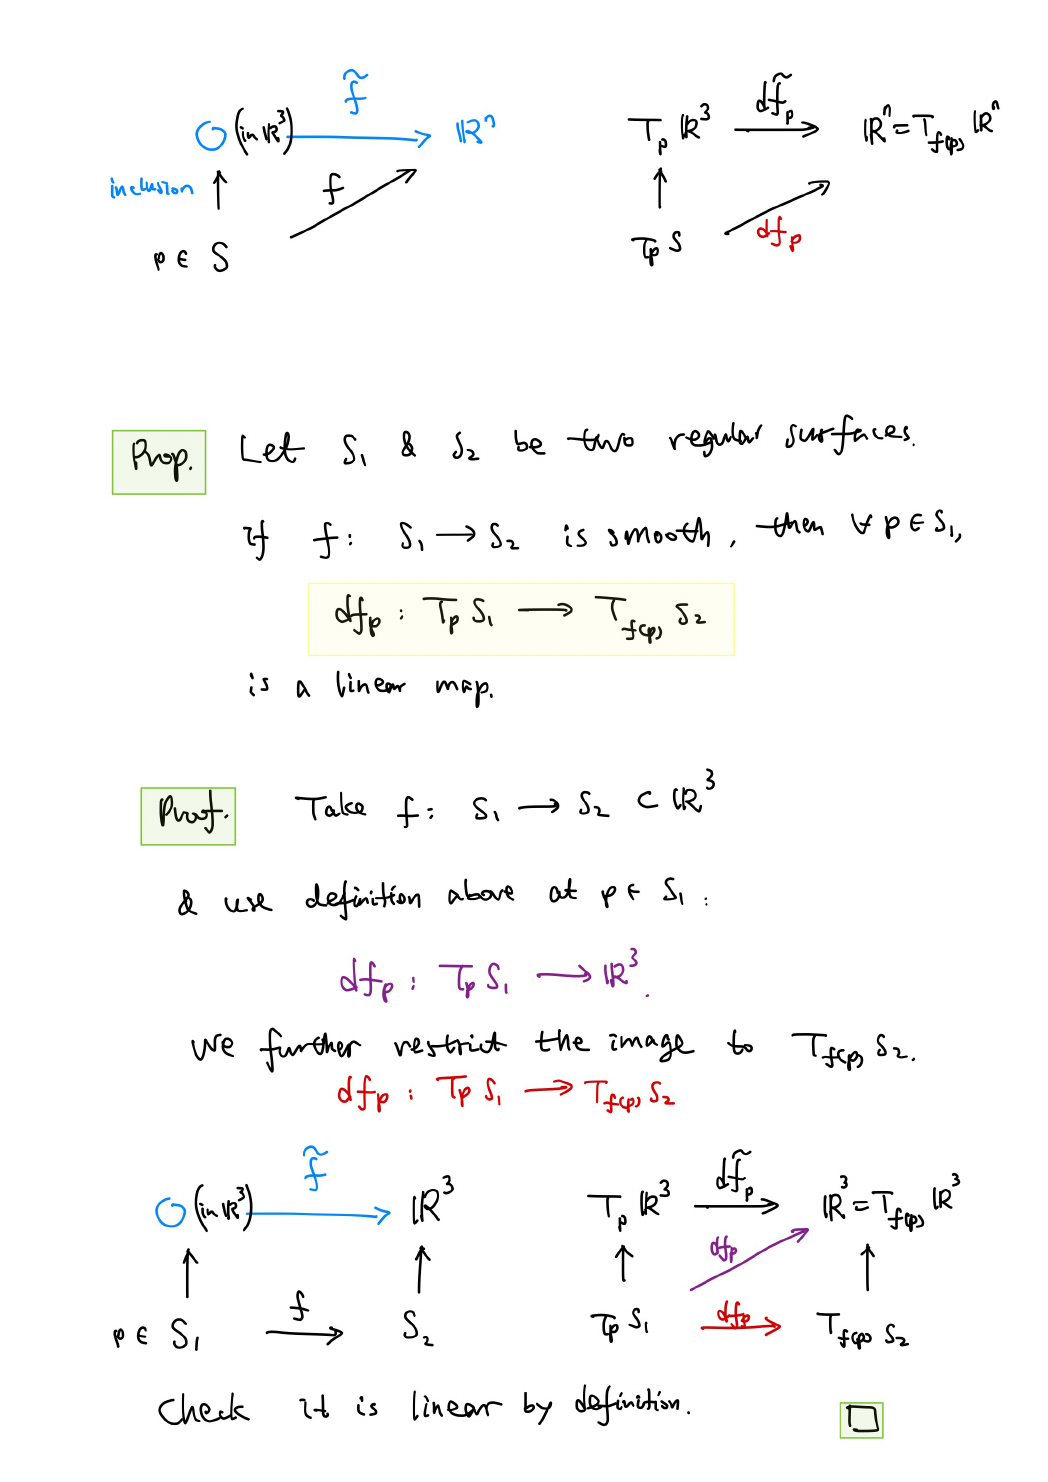 f̃
O (in ℝ³) → ℝⁿ
inclusion ↑ f ↗
p ∈ S
df̃ₚ
Tₚ ℝ³ → ℝⁿ = T_f(p) ℝⁿ
↑ ↗ dfₚ
Tₚ S
Prop. Let S₁ & S₂ be two regular surfaces.
If f: S₁ → S₂ is smooth, then ∀ p ∈ S₁,
dfₚ : Tₚ S₁ → T_f(p) S₂
is a linear map.
Proof. Take f: S₁ → S₂ ⊂ ℝ³
& use definition above at p ∈ S₁ :
dfₚ : Tₚ S₁ → ℝ³.
We further restrict the image to T_f(p) S₂.
dfₚ : Tₚ S₁ → T_f(p) S₂
f̃
O (in ℝ³) → ℝ³
↑ ↑
f
p ∈ S₁ → S₂
df̃ₚ
Tₚ ℝ³ → ℝ³ = T_f(p) ℝ³
↑ dfₚ ↗ ↑
dfₚ
Tₚ S₁ → T_f(p) S₂
Check it is linear by definition. □